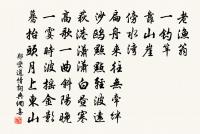 老漁翁
一釣竿
靠山崖
傍水灣
扁舟來往無牽絆
沙鷗點點輕波遠
荻港瀟瀟白晝寒
高歌一曲斜陽晚
一霎時波搖金影
驀抬頭月上東山
鄭燮道情詞